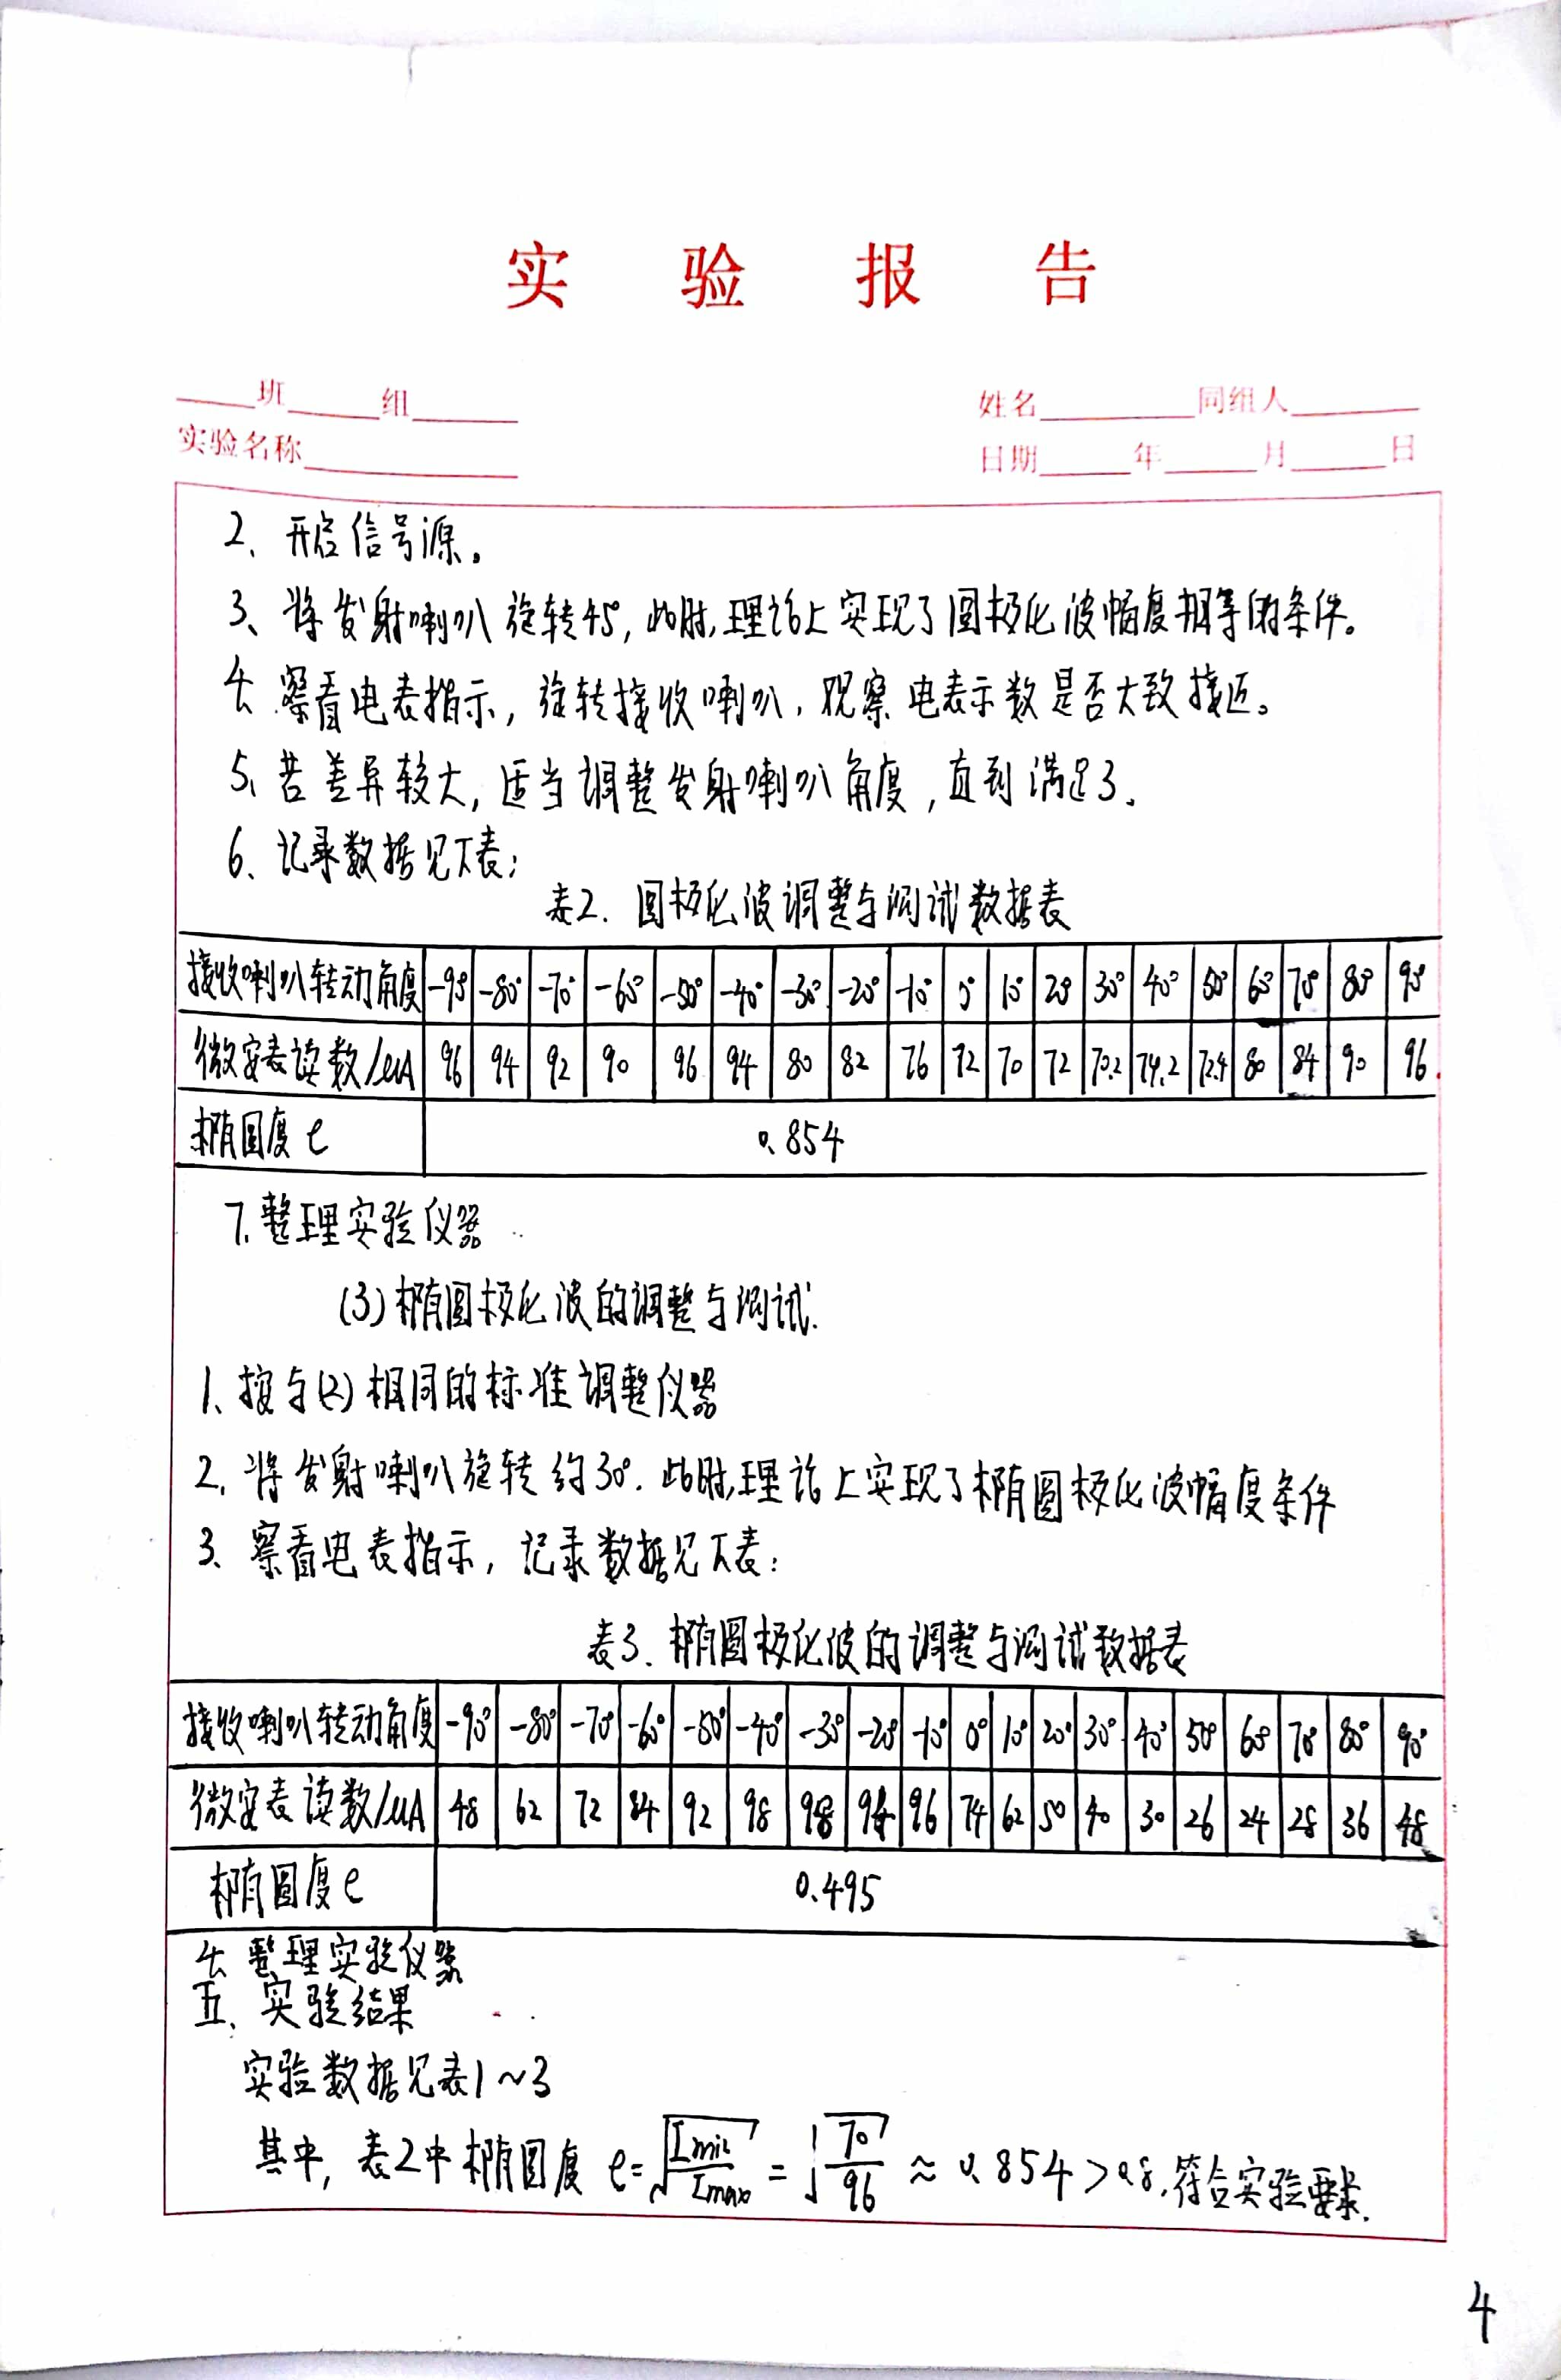 实验报告
班 组 姓名 同组人
实验名称 日期 年 月 日
2、开启信号源。
3、将发射喇叭旋转45°,此时,理论上实现了圆极化波幅度相等的条件。
4、察看电表指示,旋转接收喇叭,观察电表示数是否大致接近。
5、若差异较大,适当调整发射喇叭角度,直到满足3.
6、记录数据见下表:
表2. 圆极化波调整与测试数据表
接收喇叭转动角度 -90° -80° -70° -60° -50° -40° -30° -20° -10° 0° 10° 20° 30° 40° 50° 60° 70° 80° 90°
微安表读数/uA 96 94 92 90 96 94 80 82 76 72 70 72 70.2 74.2 72.4 80 84 90 96
椭圆度 e 0.854
7.整理实验仪器
(3)椭圆极化波的调整与测试.
1、按与(2)相同的标准调整仪器
2、将发射喇叭旋转约30°.此时,理论上实现了椭圆极化波幅度条件
3、察看电表指示,记录数据见下表:
表3. 椭圆极化波的调整与测试数据表
接收喇叭转动角度 -90° -80° -70° -60° -50° -40° -30° -20° -10° 0° 10° 20° 30° 40° 50° 60° 70° 80° 90°
微安表读数/uA 48 62 72 84 92 98 98 94 96 74 62 50 40 30 26 24 28 36 48
椭圆度e 0.495
4、整理实验仪器
五、实验结果
实验数据见表1~3
其中,表2中椭圆度 e=√(Imin/Imax) = √(70/96) ≈ 0.854>0.8,符合实验要求.
4